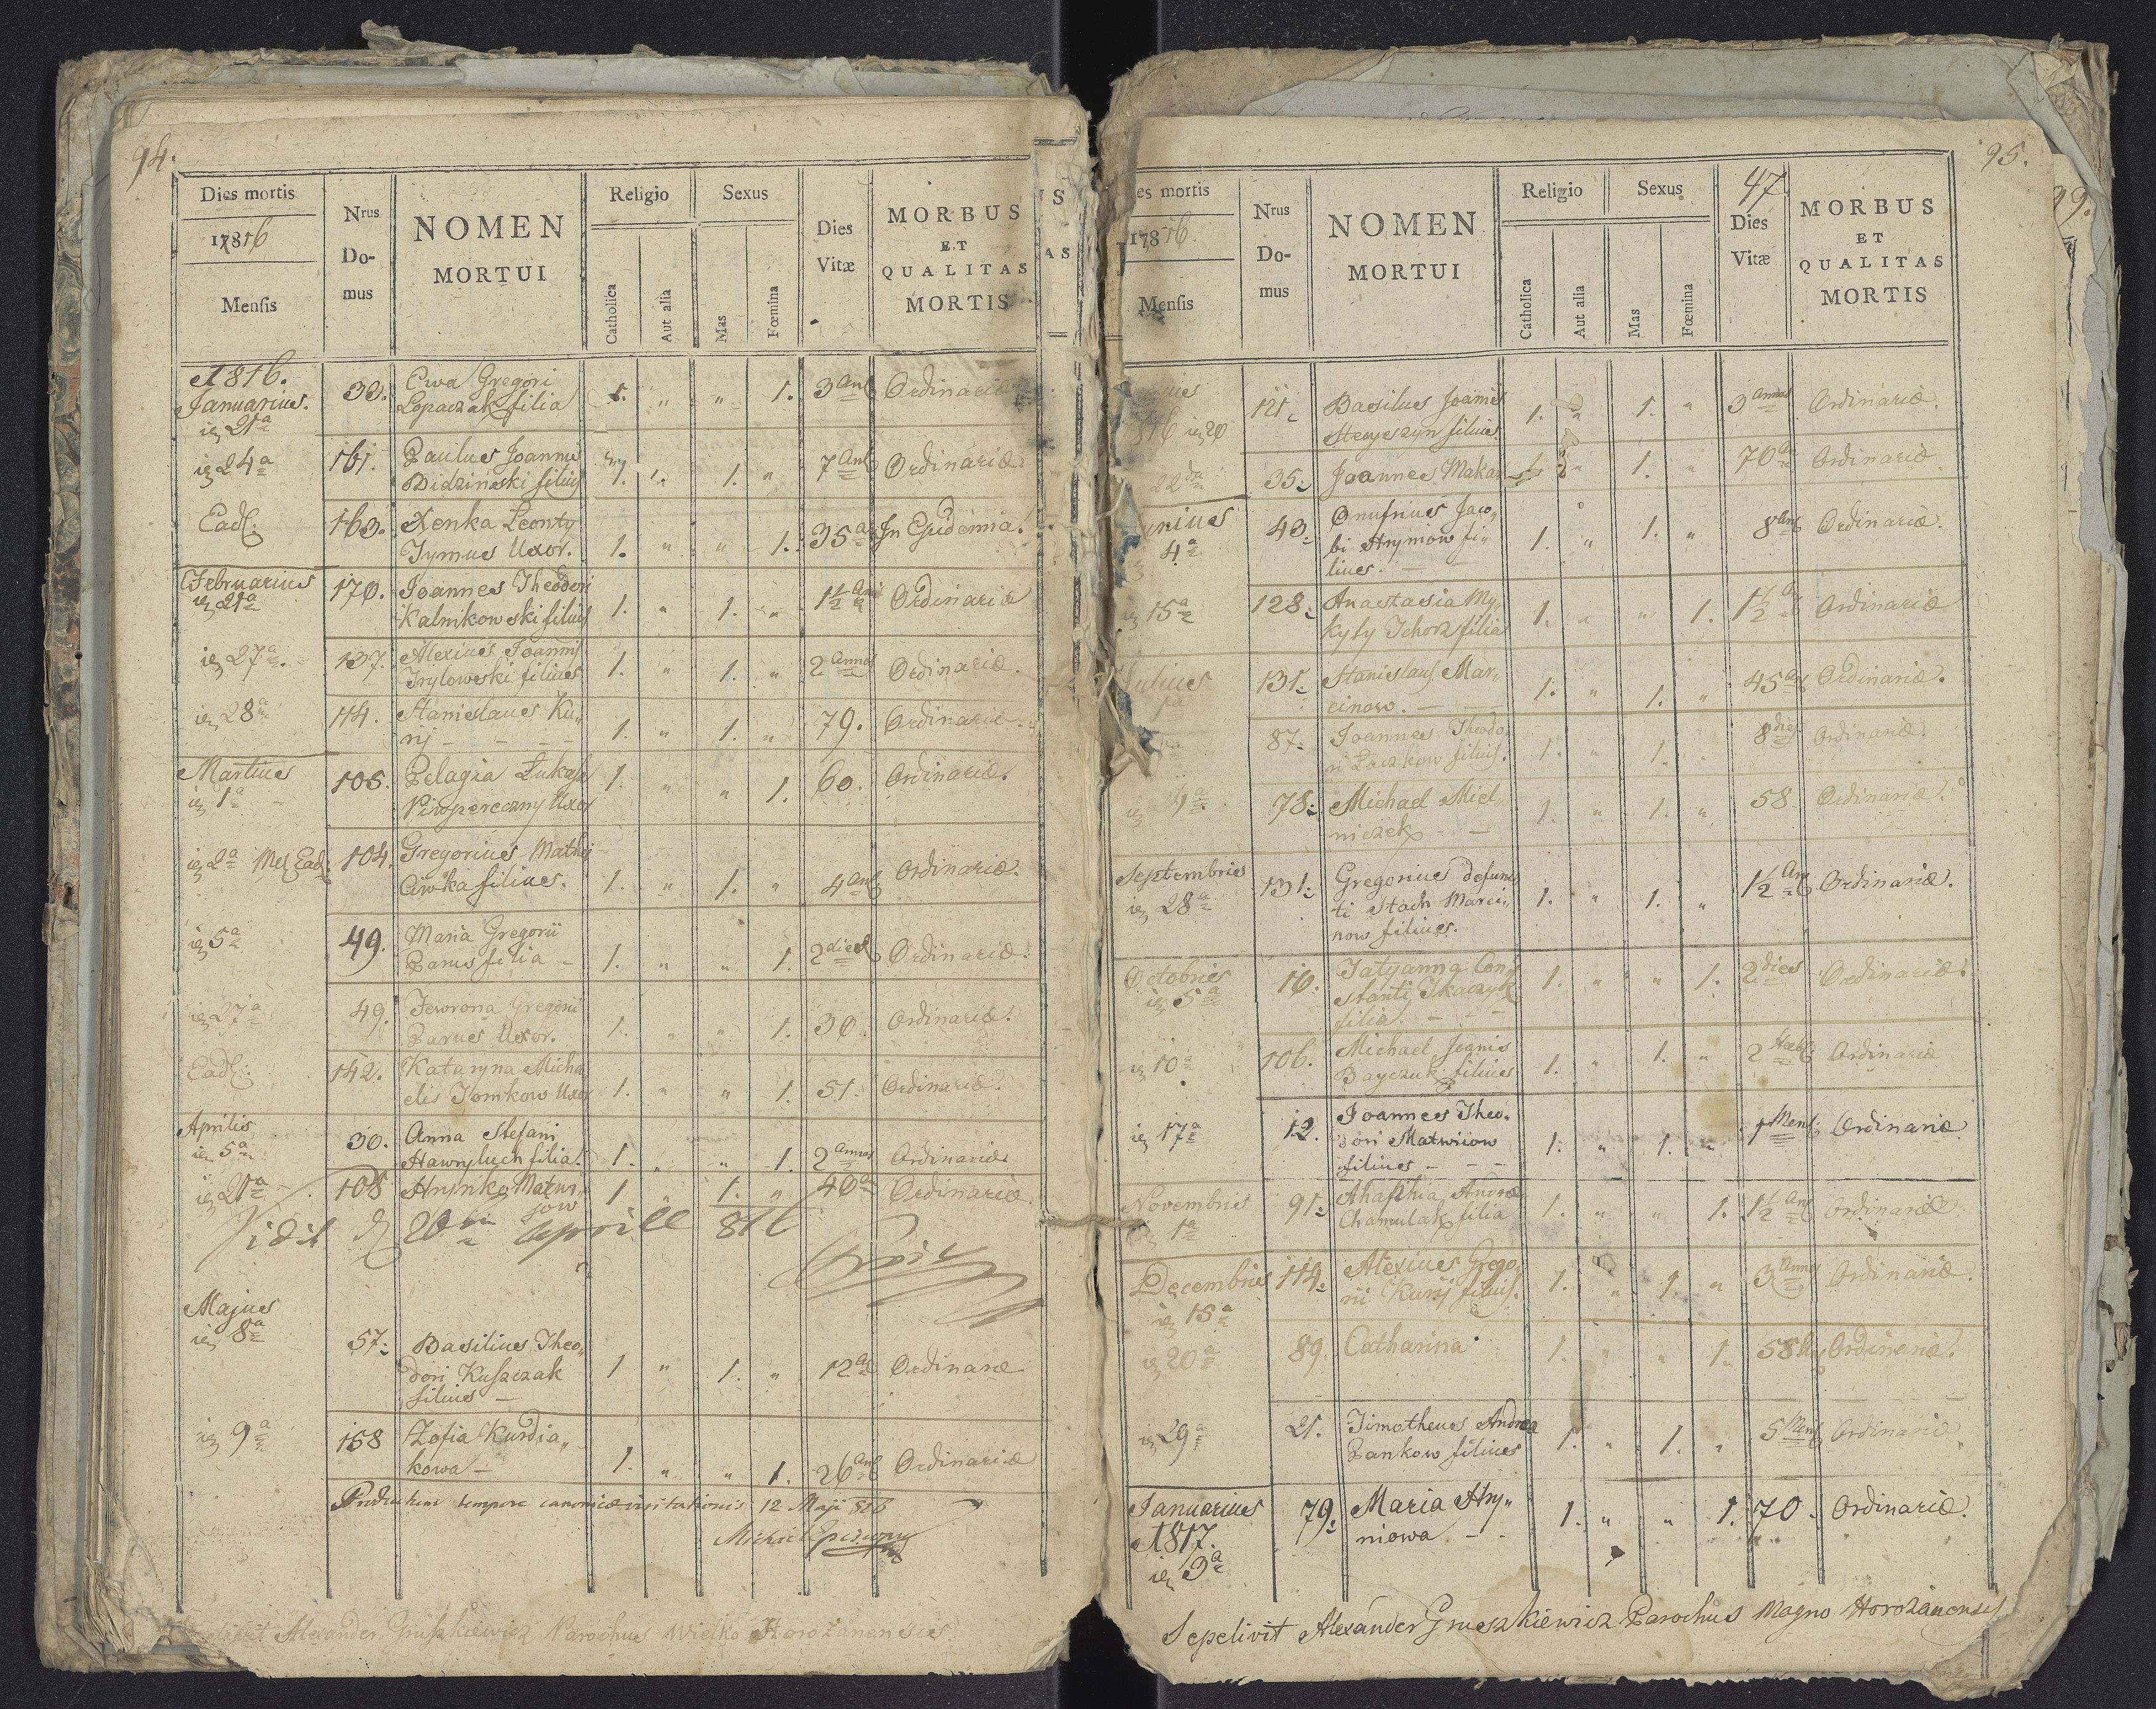 94.
Dies mortis
17816
Mensis
Nrus
Do-
mus
NOMEN
MORTUI
Religio
Catholica
Aut alia
Sexus
Mas
Fœmina
Dies
Vitæ
MORBUS
ET
QUALITAS
MORTIS
A 1816.
Januarius.
21a
33.
Ewa Gregori
Lopaczak filia
1. " " 1. 3 An Ordinaria
24a
161.
Paulus Joannis
Didzinski filius
1. " 1. " 7 An Ordinaria
Ead.
163.
Xenka Leonty
Tymus Uxor.
1. " " 1. 35 a In Epidemia.
Februarius
21a
170.
Joannes Theodori
Kalnikowski filius
1. " 1. " 1½ Ordinaria
27a
137.
Alexius Joannis
Trylowski filius
1. " 1. " 2 Annos Ordinaria.
28a
114.
Stanislaus Ku„
nj - - -
1. " 1. " 79. Ordinaria.
Martius
1a
105.
Pelagia Lukasz
Piwpereczny Uxor
1. " " 1. 60. Ordinaria.
2a Me Ead.
104.
Gregorius Mathej
Ciwka filius.
1. " 1. " 4 An Ordinaria.
5a
49.
Maria Gregorii
Parus filia -
1. " " 1. 2 dies Ordinaria.
27a
49.
Jewrona Gregorii
Parus Uxor.
1. " " 1. 30 Ordinaria.
Ead.
142.
Kataryna Micha
elis Tomkow Uxor
1. " " 1. 51. Ordinaria.
Aprilis
5a
30.
Anna Stefani
Hawryluch filia.
1. " " 1. 2 Annos Ordinaria
21a
108
Hrynko Matwi„
jow
1 " 1. " 40 a Ordinaria.
Vidit d 20 Aprill 816
Majus
8a
57.
Basilius Theo„
dori Kuszczak
filius -
1 " 1. " 12 Ordinaria
9a
158
Zofia Kurdia„
kowa -
1. " " 1. 26 Ordinaria
Productum tempore canonicæ visitationis 12 Maji 816
Michael Episcopus
Sepelivit Alexander Gruszkiewicz Parochus Wielko Horożanensis
95.
99.
es mortis
17816.
Mensis
Nrus
Do-
mus
NOMEN
MORTUI
Religio
Catholica
Aut alia
Sexus
Mas
Fœmina
47
Dies
Vitæ
MORBUS
ET
QUALITAS
MORTIS
816 20
121.
Basilius Joannis
Steryszyn filius.
1. " 1. " 3 Annos Ordinaria.
22
35.
Joannes Makar
1. " 70 Ordinaria
ynius
4a
43.
Onufrius Jaco„
bi Hryniow fi„
lius. - -
1. " 1. " 8 An Ordinaria.
15a
128.
Anastasia My„
kyty Tchorz filia
1. " " 1. 1½ Ordinaria
Julius
131.
Stanislaus Mar„
cinow. - -
1. " 1. " 45 Ordinaria.
87.
Joannes Theodo
ri Luzkow filius.
1. 1. 8 dies Ordinaria.
9a
78.
Michael Miel„
niczek - -
1. " 1. " 58 Ordinaria.
Septembris
28a
131.
Gregorius defunc
ti Stach Marci„
now filius.
1. " 1. " 1½ An Ordinaria.
Octobris
5a
16.
Tatyanna Con„
stanti Tkaczyk
filia. - - -
1. " " 1. 2 dies Ordinaria.
10a
106.
Michael Joanis
Bayczuk filius
1. " 1. " 2 Ordinaria
17a
12.
Joannes Theo.
dori Matwiiow
filius - - -
1. " 1. " 1 Mens. Ordinaria.
Novembris
1a
91.
Ahaphia Andræ
Chamulak filia
1. " " 1. 1½ An Ordinaria
Decembris
15a
114.
Alexius Grego„
rii Kunj filius.
1. " 1. " 3 Annos Ordinaria.
20a
89.
Catharina
1. " " 1. 58 Ordinaria.
29a
21.
Timotheus Andrea
Pankow filius
1. " 1. " 5 Mens Ordinaria
Januarius
A 817.
9a
79.
Maria Hry„
niowa. - -
1. " " 1. 70. Ordinaria.
Sepelivit Alexander Gruszkiewicz Parochus Magno Horożanensis